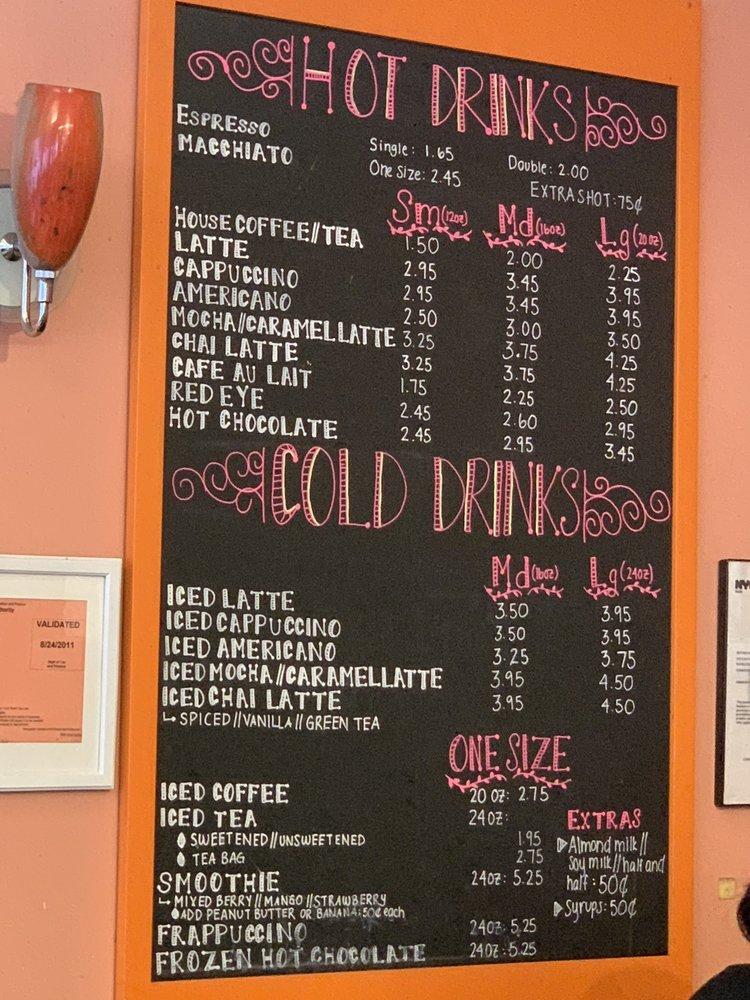 HOT DRINKS
ESPRESSO Single: 1.65 Double: 2.00
MACCHIATO One Size: 2.45 EXTRA SHOT: 75¢
Sm (12oz) Md (16oz) Lg (20 oz)
HOUSE COFFEE//TEA 1.50 2.00 2.25
LATTE 2.95 3.45 3.95
CAPPUCCINO 2.95 3.45 3.95
AMERICANO 2.50 3.00 3.50
MOCHA//CARAMEL LATTE 3.25 3.75 4.25
CHAI LATTE 3.25 3.75 4.25
CAFE AU LAIT 1.75 2.25 2.50
RED EYE 2.45 2.60 2.95
HOT CHOCOLATE 2.45 2.95 3.45
COLD DRINKS
Md (16oz) Lg (24oz)
ICED LATTE 3.50 3.95
ICED CAPPUCCINO 3.50 3.95
ICED AMERICANO 3.25 3.75
ICED MOCHA//CARAMEL LATTE 3.95 4.50
ICED CHAI LATTE 3.95 4.50
SPICED//VANILLA//GREEN TEA
ONE SIZE
ICED COFFEE 20 OZ: 2.75
ICED TEA 24OZ:
SWEETENED//UNSWEETENED 1.95
TEA BAG 2.75
SMOOTHIE 24OZ: 5.25
MIXED BERRY//MANGO//STRAWBERRY
ADD PEANUT BUTTER OR BANANA: 50¢ each
FRAPPUCCINO 24OZ: 5.25
FROZEN HOT CHOCOLATE 24OZ: 5.25
EXTRAS
Almond milk//
soy milk//half and
half: 50¢
Syrups: 50¢
VALIDATED
8/24/2011